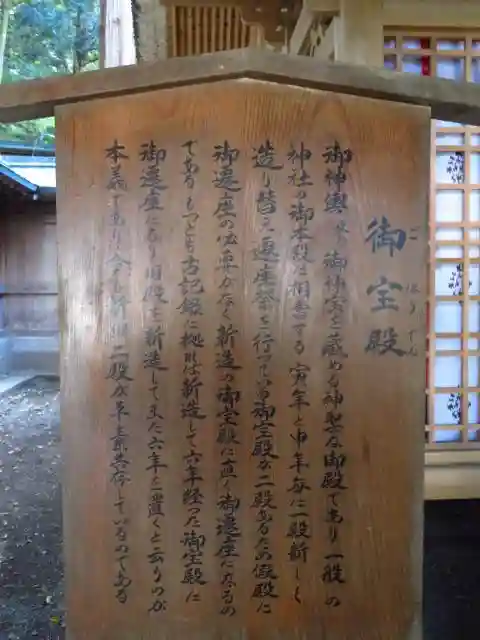 御宝殿
ごほうでん
御神輿や御神宝を蔵める神聖な御殿であり一般の
神社の御本殿に相当する 寅年と申年毎に一殿新しく
造り替え遷座祭を行っている御宝殿が二殿あるため仮殿に
御遷座の必要がなく新造の御宝殿に直ぐ御遷座になるの
である もっとも古記録に拠れば新造して六年経った御宝殿に
御遷座になり旧殿を新造してまた六年を置くと云うのが
本義であり今も新旧二殿が並立共存しているのである